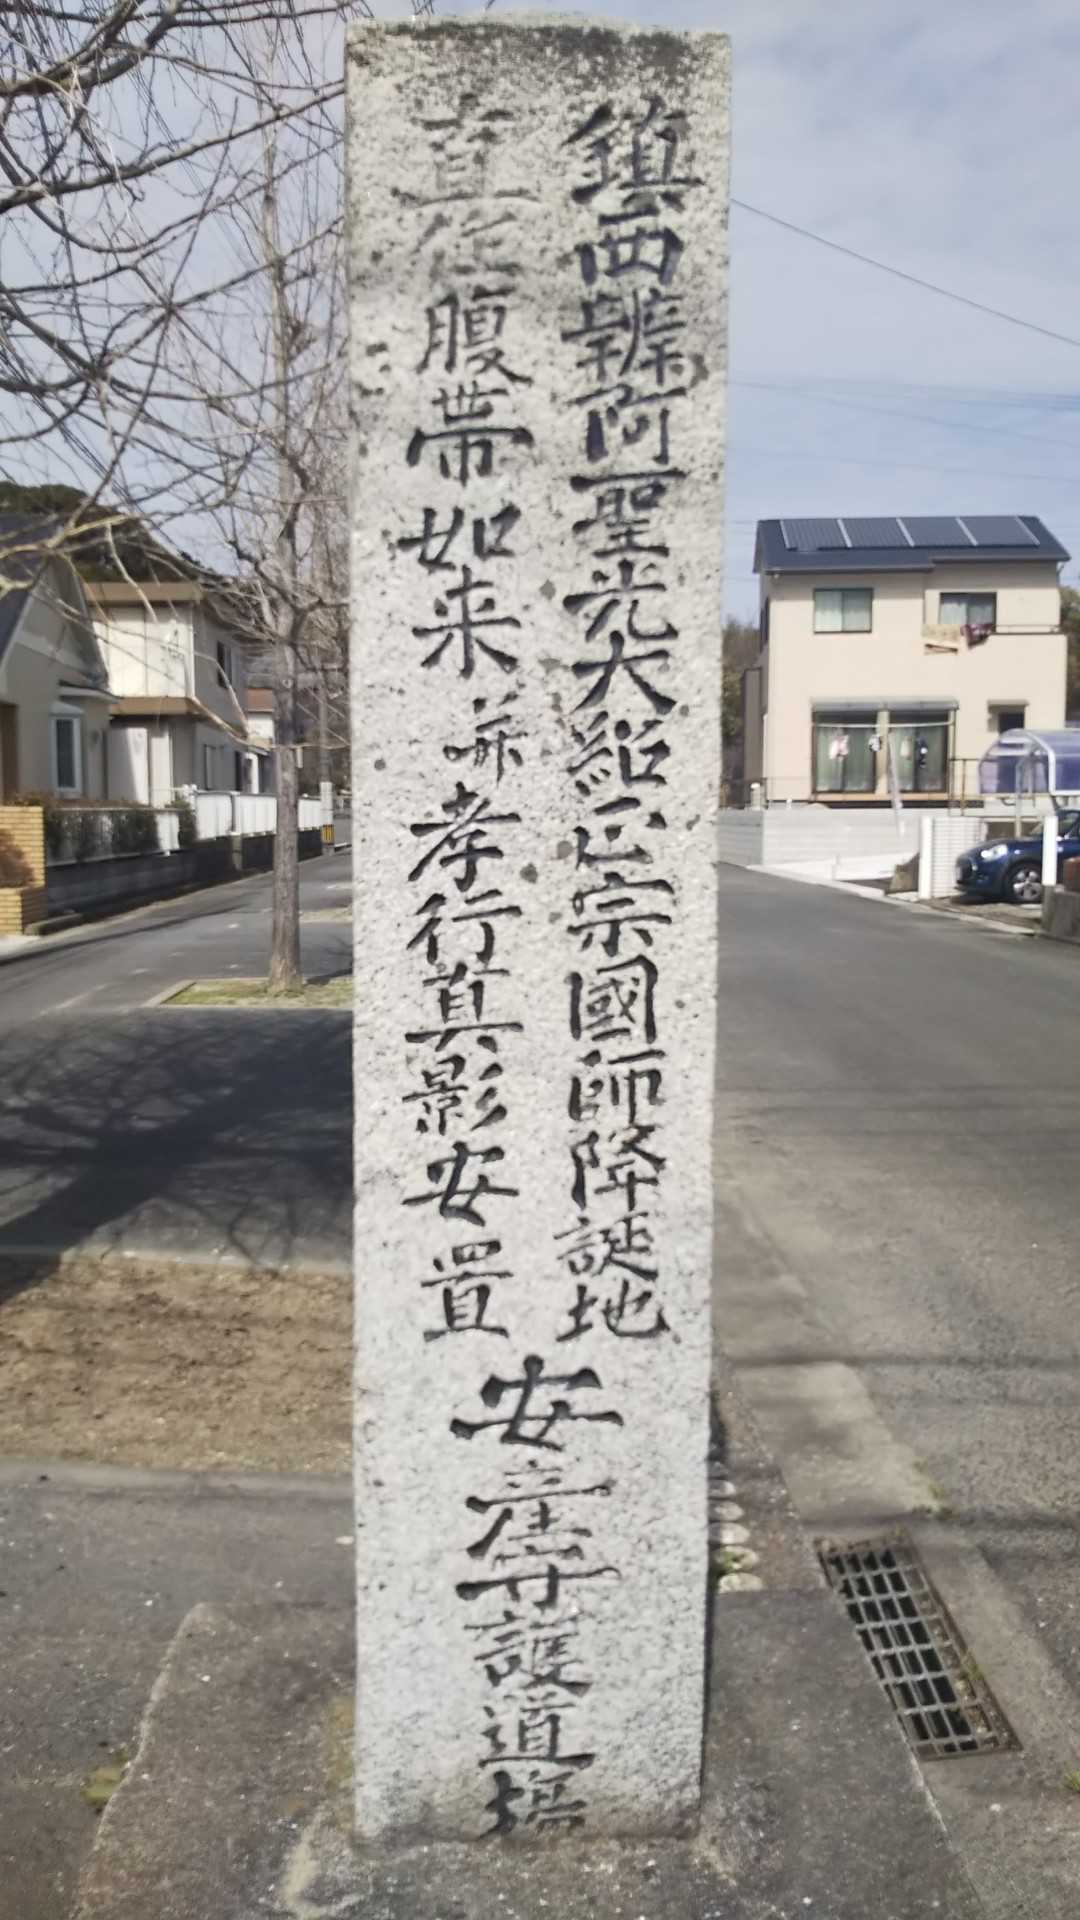 鎮西辨阿聖光大紹正宗國師降誕地
直作腹帯如来并孝行真影安置
安産守護道場